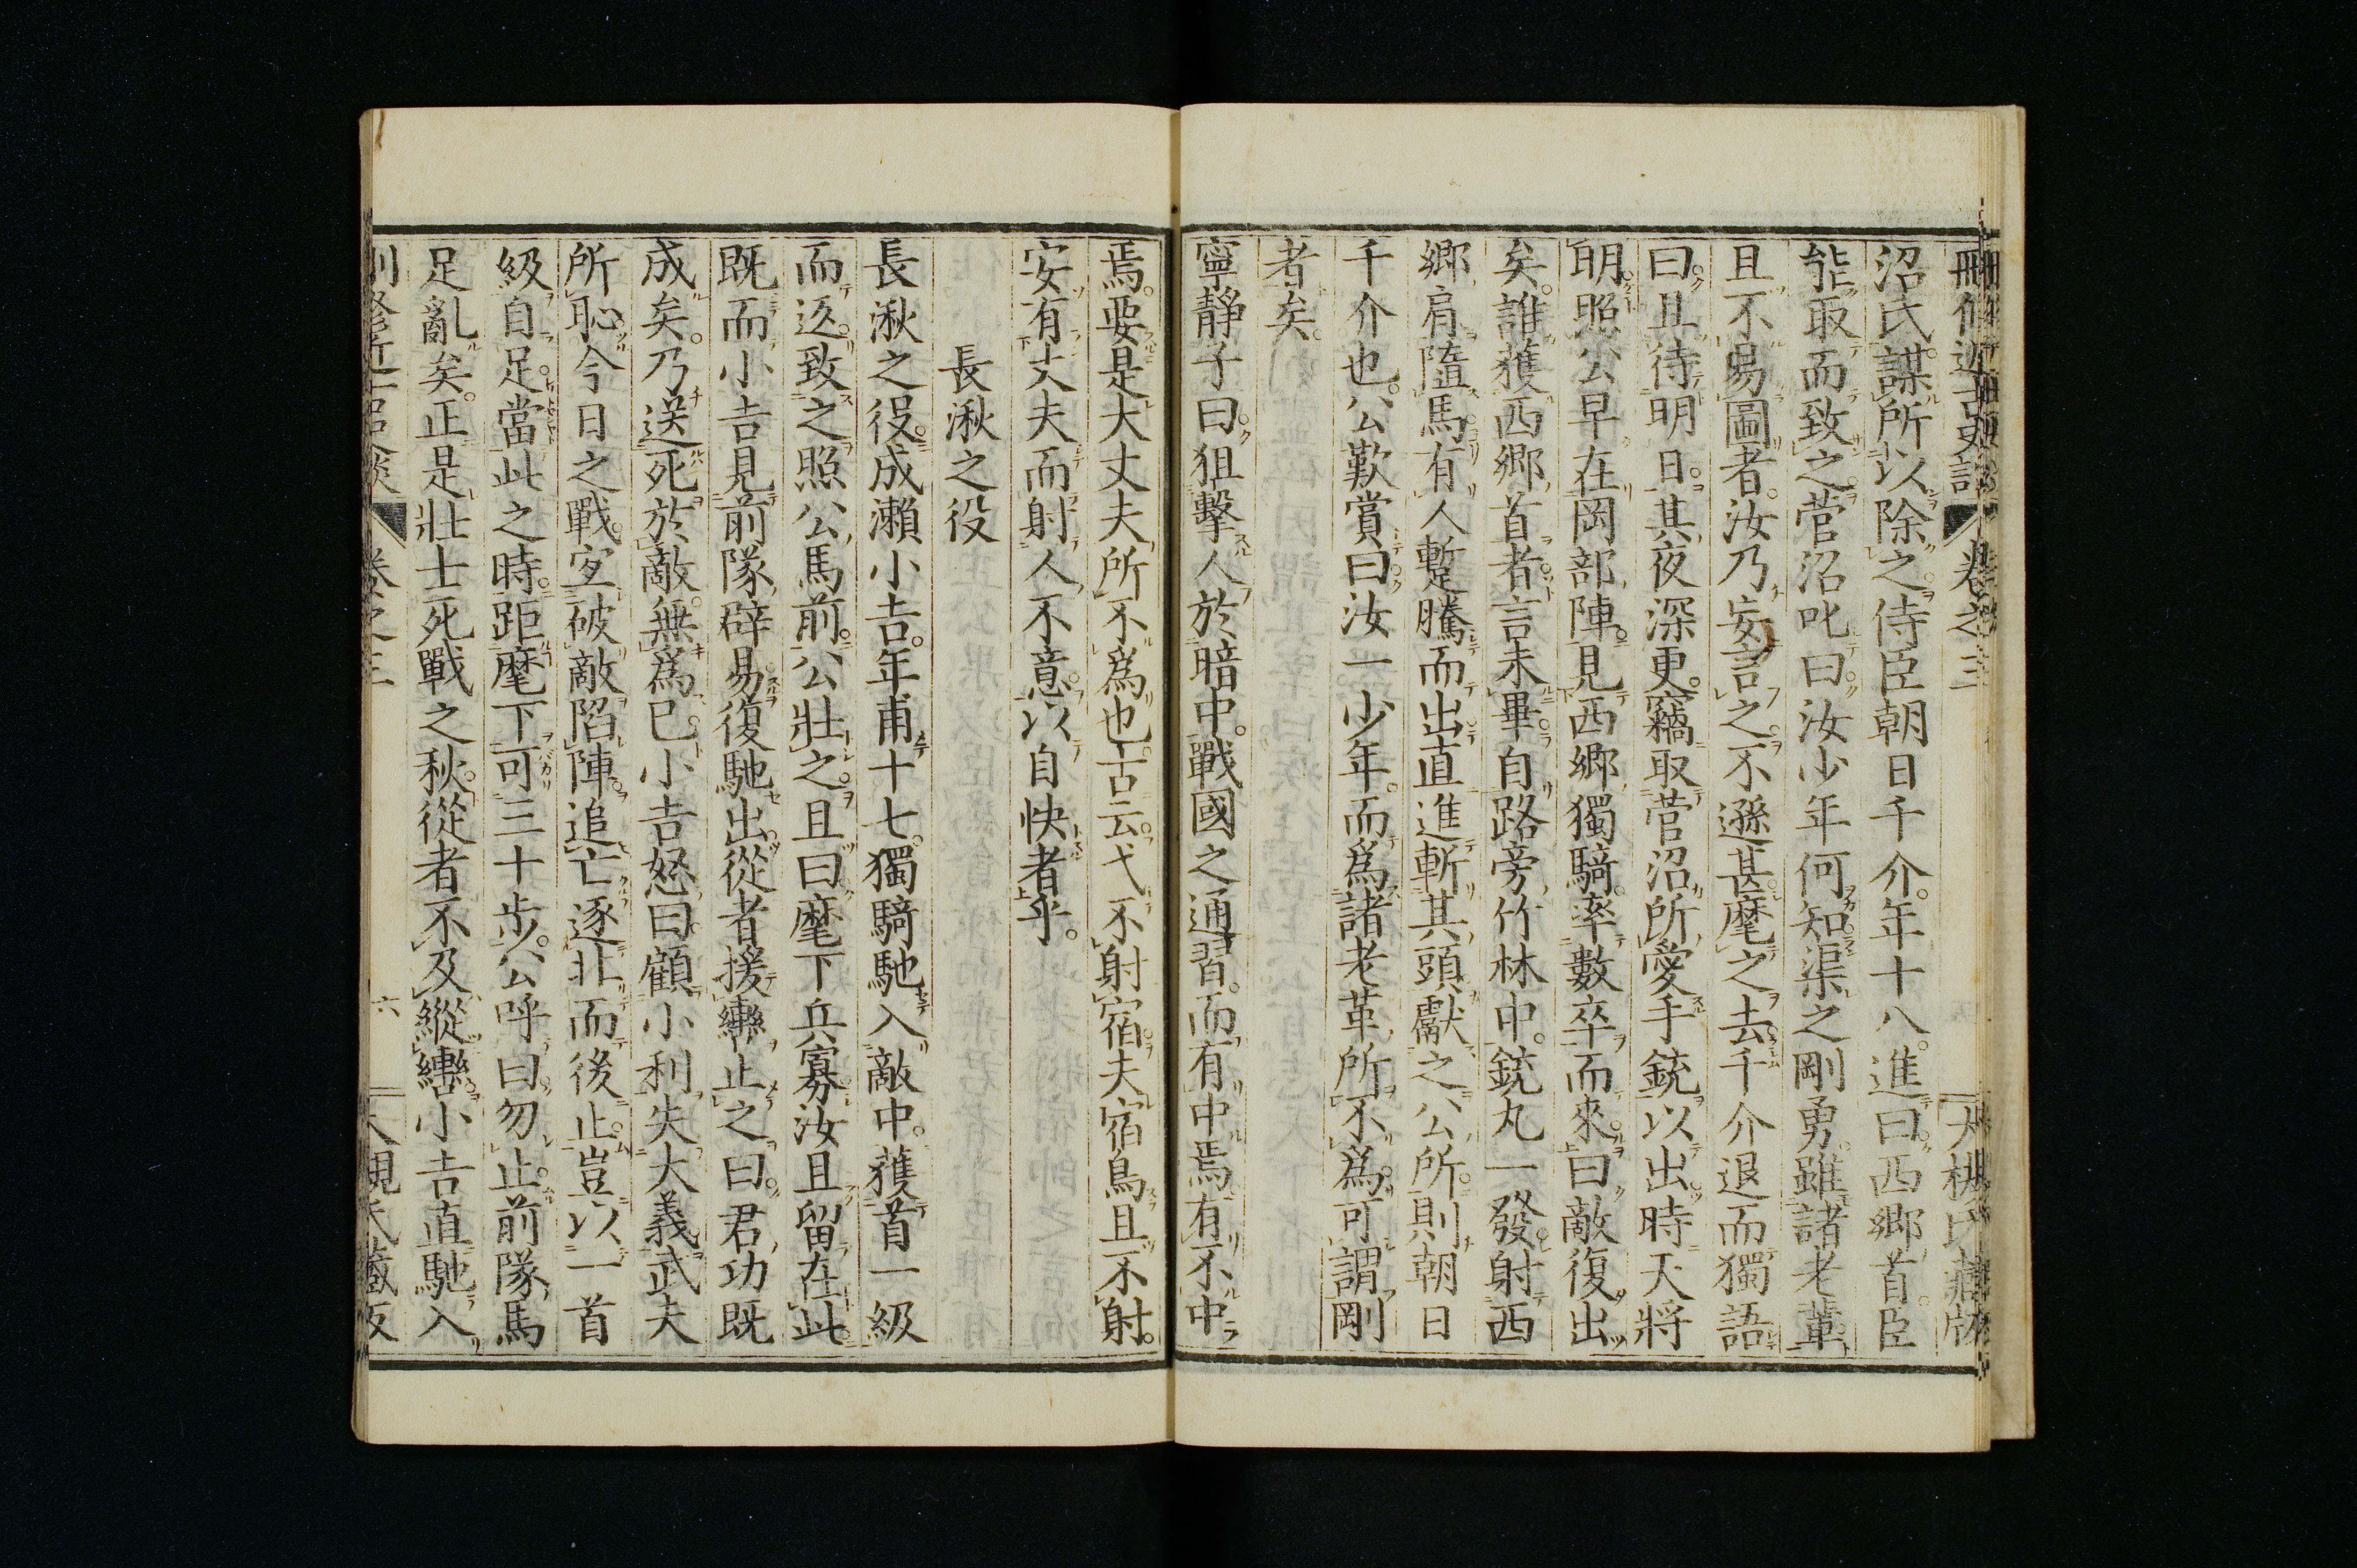 刪修近古史談 卷之三 大槻氏藏版
沼氏謀所以除之侍臣朝日千介年十八進曰西鄉首臣
能取而致之菅沼叱曰汝少年何知渠之剛勇雖諸老輩
且不易圖者汝乃妄言之不遜甚麾之去千介退而獨語
曰且待明日其夜深更竊取菅沼所愛手銃以出時天將
明照公早在岡部陣見西鄉獨騎率數卒而來曰敵復出
矣誰獲西鄉首者言未畢自路旁竹林中銃丸一發射西
鄉肩隨馬有人蹔騰而出直進斬其頭獻之公所則朝日
千介也公歎賞曰汝一少年而爲諸老革所不爲可謂剛
者矣
寧靜子曰狙擊人於暗中戰國之通習而有中焉有不中
焉要是大丈夫所不爲也古云弋不射宿夫宿鳥且不射
安有丈夫而射人不意以自快者乎
長湫之役
長湫之役成瀨小吉年甫十七獨騎馳入敵中獲首一級
而返致之照公馬前公壯之且曰麾下兵寡汝且留在此
既而小吉見前隊辟易復馳出從者援轡止之曰君功既
成矣乃送死於敵無爲已小吉怒曰顧小利失大義武夫
所恥今日之戰寔破敵陷陣追亡逐北而後止豈以一首
級自足當此之時距麾下可三十步公呼曰勿止前隊馬
足亂矣正是壯士死戰之秋從者不及縱轡小吉直馳入
刪修近古史談 卷之三 六 大槻氏藏版